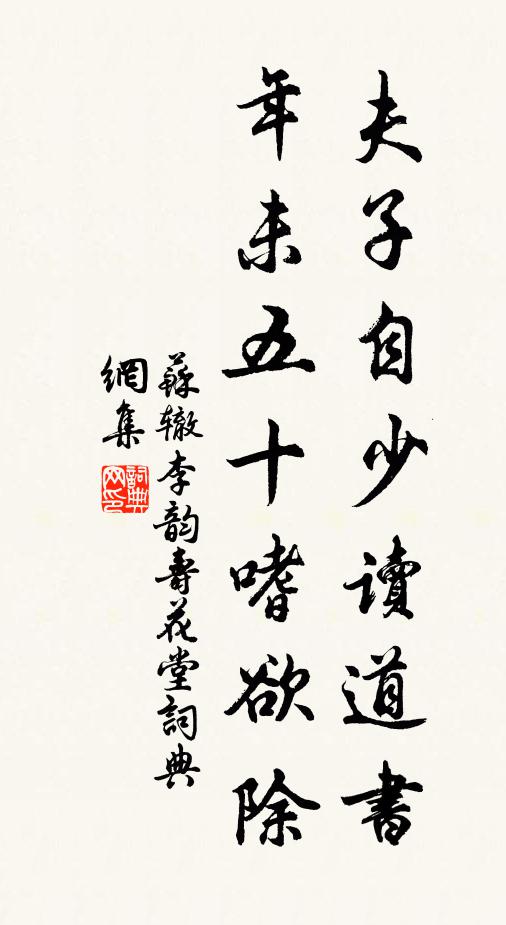 夫子自少讀道書
年未五十嗜欲除
蘇辙李韵壽花堂詞典
網集
詞典網印